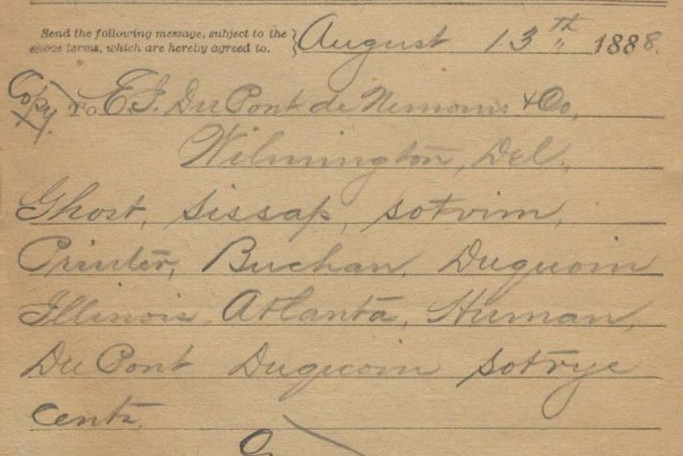 Send the following message, subject to the
above terms, which are hereby agreed to. } August 13th 1888.
Copy To E I. Du Pont de Nemours & Co,
Wilmington, Del.
Ghost, sissap, sotvim,
Printer, Buchan, Duquoin
Illinois Atlanta, Human,
Du Pont Duquoin sotrye
cents